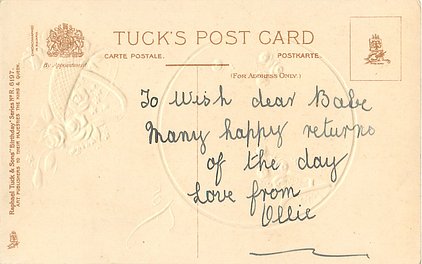 TUCK'S POST CARD
By Appointment
CARTE POSTALE.
POSTKARTE.
(FOR ADDRESS ONLY.)
To Wish dear Babe
Many happy returns
of the day
Love from
Ollie
Raphael Tuck & Sons' "Birthday" Series No. R. 6197.
ART PUBLISHERS TO THEIR MAJESTIES THE KING & QUEEN.